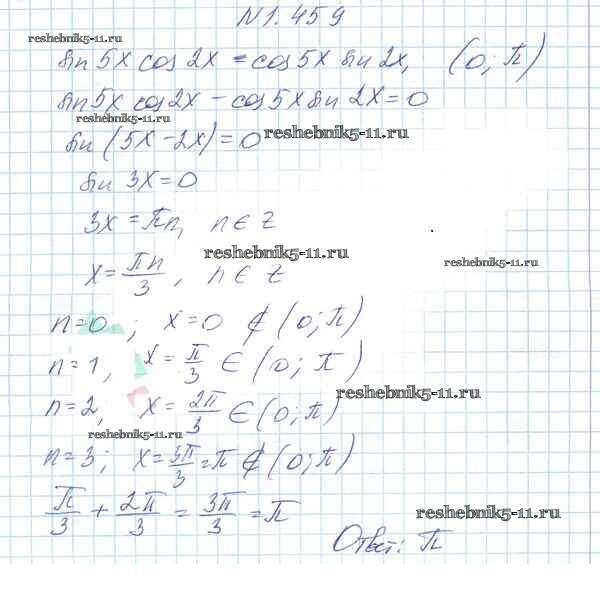 N 1.459
reshebnik5-11.ru
sin 5x cos 2x = cos 5x sin 2x, (0; π)
sin 5x cos 2x - cos 5x sin 2x = 0
reshebnik5-11.ru
sin (5x - 2x) = 0 reshebnik5-11.ru
sin 3x = 0
3x = πn, n ∈ Z
reshebnik5-11.ru
reshebnik5-11.ru
x = πn/3, n ∈ Z
n = 0; x = 0 ∉ (0; π)
n = 1, x = π/3 ∈ (0; π)
reshebnik5-11.ru
n = 2, x = 2π/3 ∈ (0; π)
reshebnik5-11.ru
n = 3; x = 3π/3 = π ∉ (0; π)
π/3 + 2π/3 = 3π/3 = π
reshebnik5-11.ru
Ответ: π